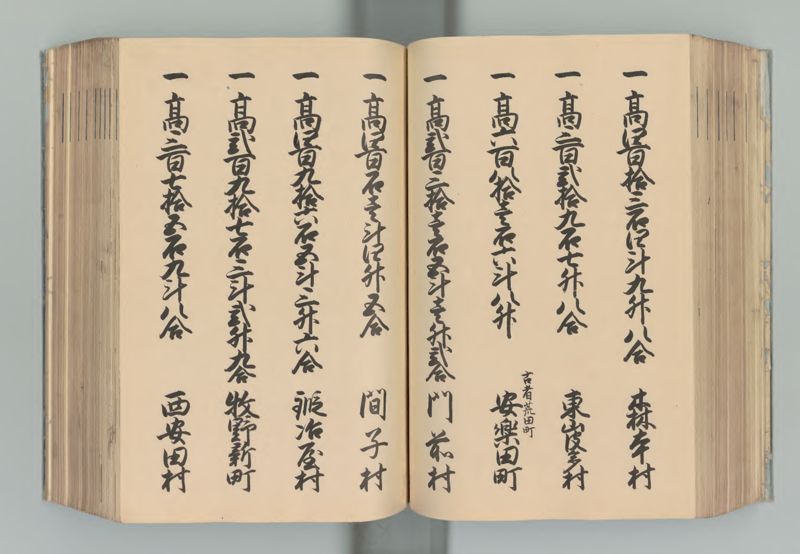 一 高四百拾三石四斗九升八合 森本村
一 高三百弐拾九石七升八合 東山皮多村
一 高六百八拾壱石六斗八升 古者荒田町 安楽田町
一 高弐百三拾壱石五斗壱升弐合 門前村
一 高四百石壱斗四升五合 間子村
一 高四百九拾六石五斗三升六合 鍛冶屋村
一 高弐百九拾七石三斗弐升九合 牧野新町
一 高三百七拾五石九斗八合 西安田村